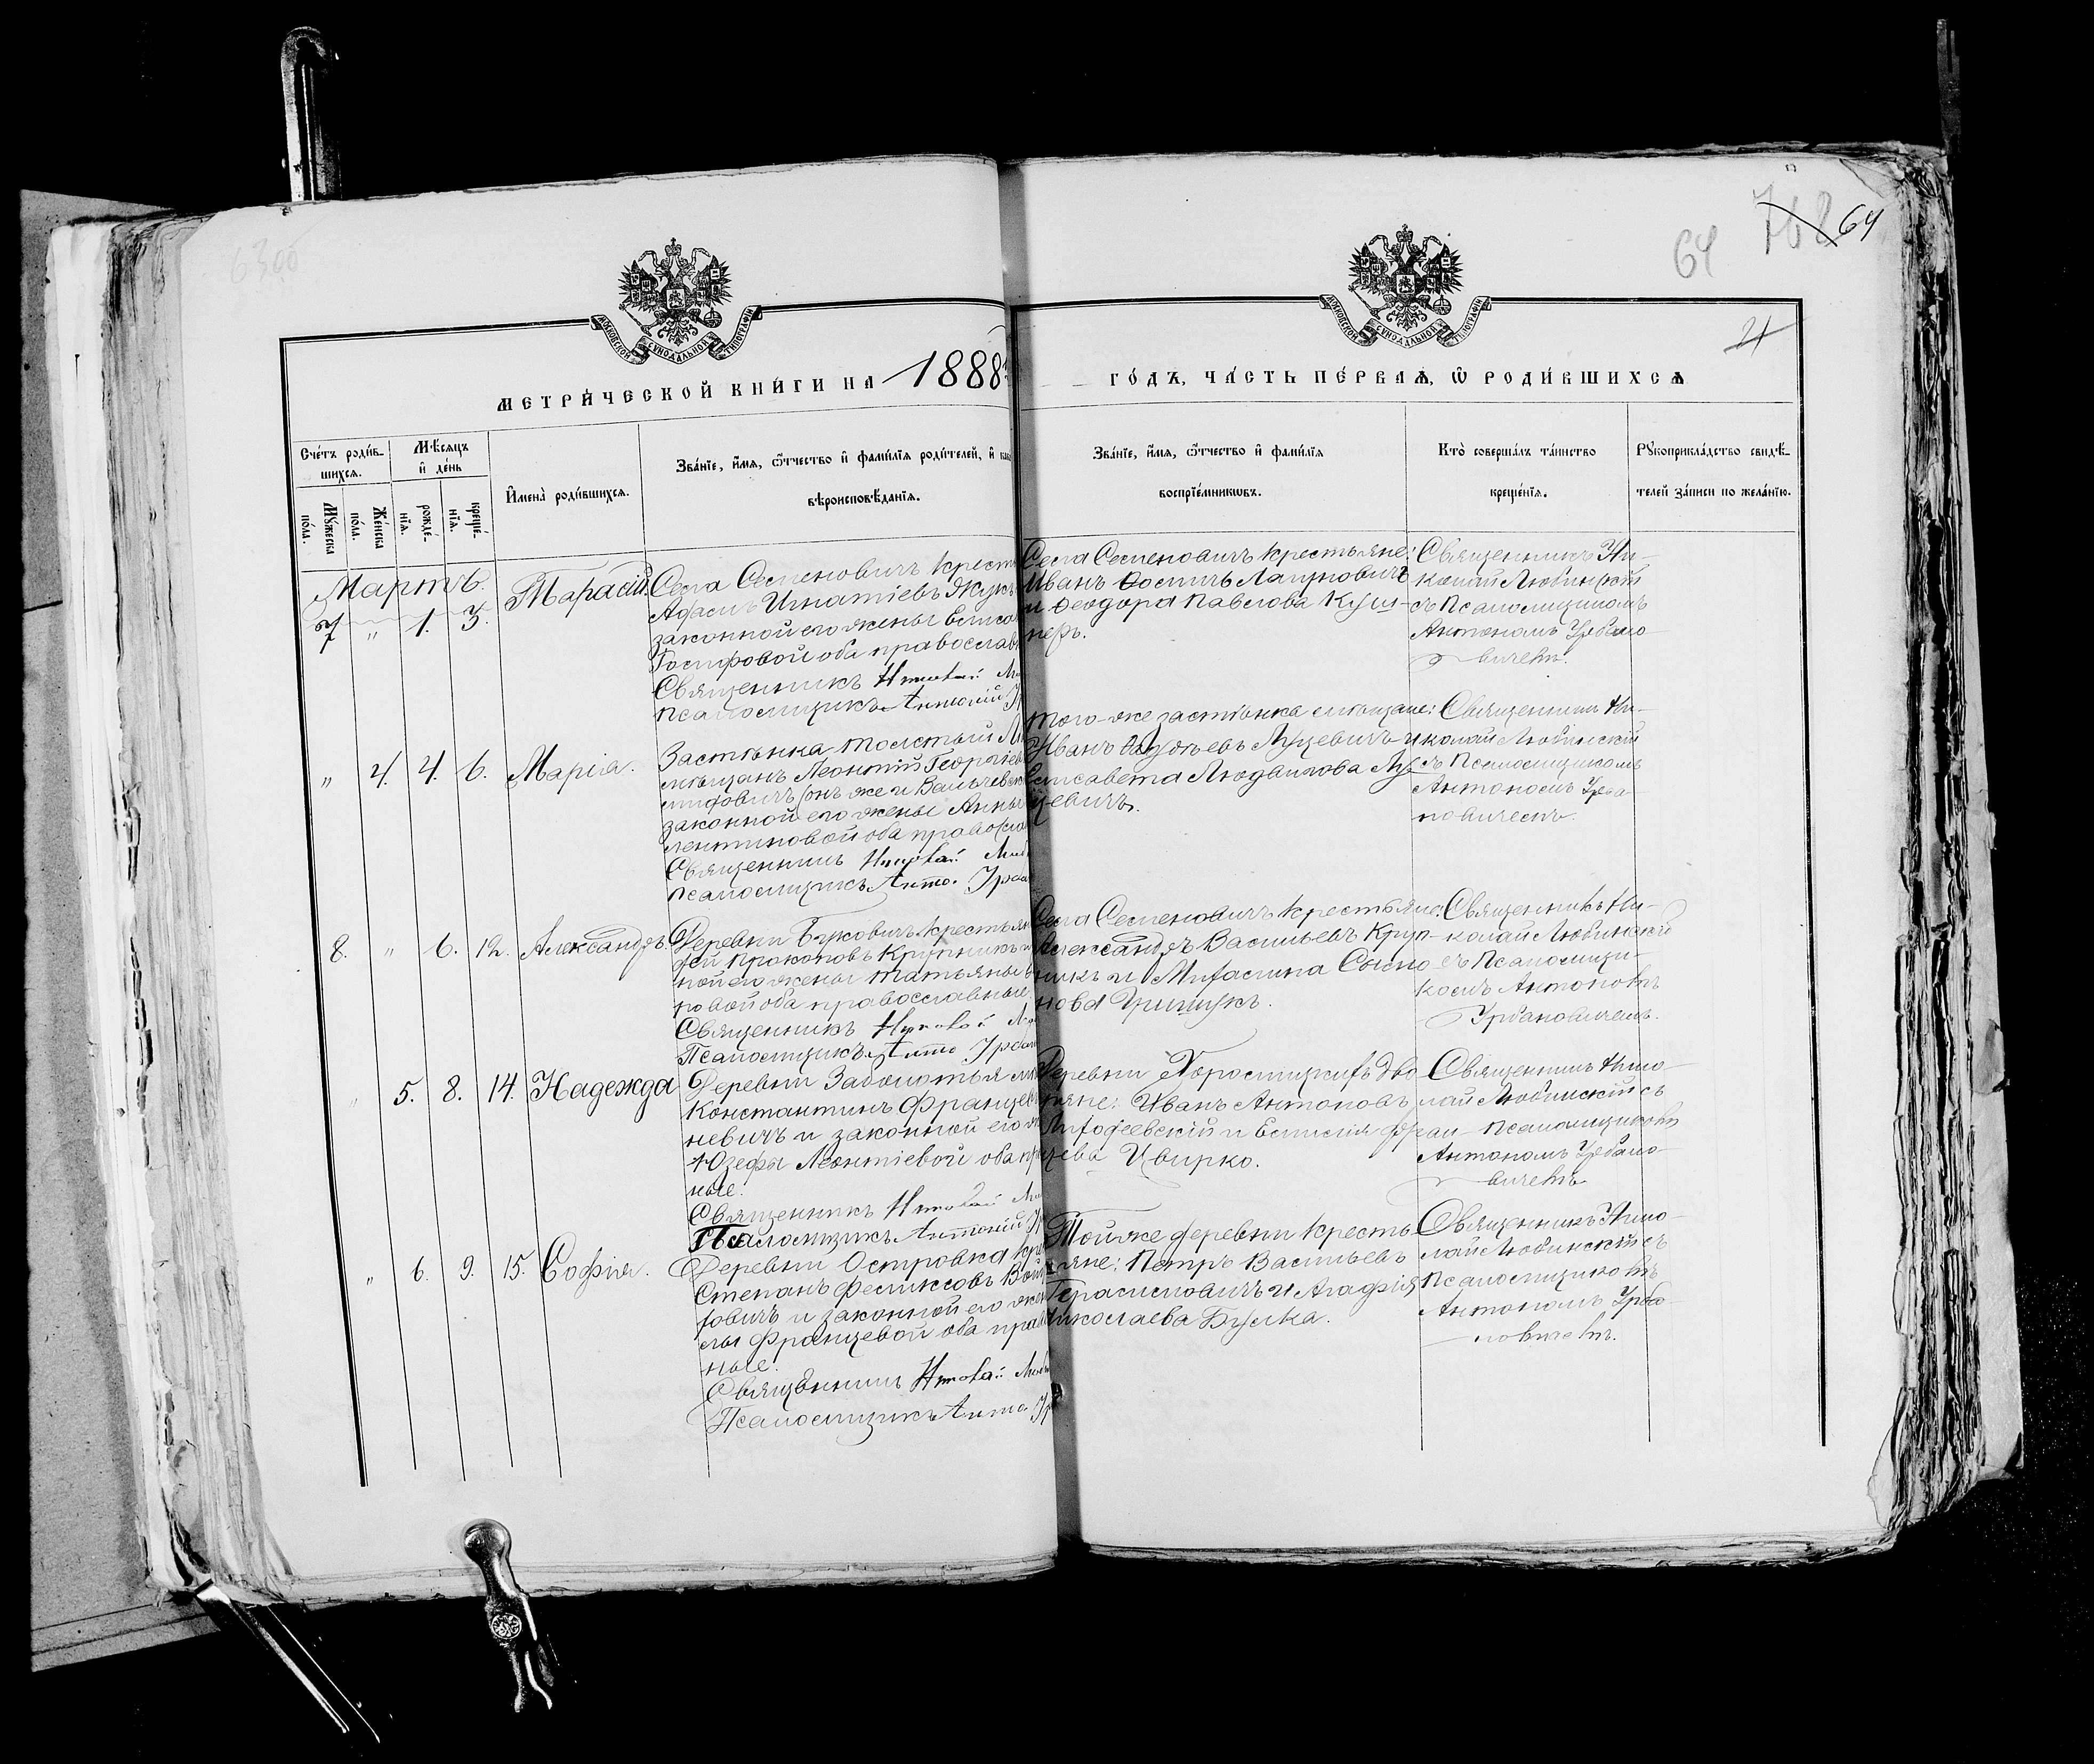 64
768 64
МОСКОВСКОЙ СѴНОДАЛЬНОЙ ТИПОГРАФІИ
МОСКОВСКОЙ СѴНОДАЛЬНОЙ ТИПОГРАФІИ
21
МЕТРИ́ЧЕСКОЙ КНИ́ГИ НА 1888
ГО́ДЪ, ЧА́СТЬ ПЕ́РВАѦ, Ѡ҆ РОДИ́ВШИХСѦ
Сче́тъ роди́в-
шихсѧ.
Мꙋ́жеска по́ла.
Же́нска по́ла.
Мѣ́сѧцъ
и҆ де́нь
рожде́-нїѧ.
креще́-нїѧ.
И҆мена̀ роди́вшихсѧ.
Зва́нїе, и҆́мѧ, ѻ҆́тчество и҆ фами́лїѧ роди́телей, и҆
вѣроисповѣ́данїѧ.
Зва́нїе, и҆́мѧ, ѻ҆́тчество и҆ фами́лїѧ
воспрїе́мникѡвъ.
Кто̀ соверша́лъ та́инство
креще́нїѧ.
Рꙋкоприкла́дство свидѣ́-
телей за́писи по жела́нїю.
Мартъ.
7 " 1. 3.
Тарасій.
Села Семеновичъ крест
Игнатіевъ Жук
законной его жены
Іосифовой оба православ
Священникъ Николай
Псаломщикъ Антоній
Села Семеновичъ крестьяне:
Иванъ
и Ѳеодора Павлова Куш-
неръ.
Священникъ Ни-
колай Любинскій
съ Псаломщикомъ
Антономъ Урбано-
вичемъ.
" 4. 4. 6.
Марія.
Застѣнка Толстый
мѣщанъ Леонтій Георгіев
(онъ же и
законной его жены Анны
лентиновой оба правосла
Священникъ Николай Люб
Псаломщикъ Анто. Урба
Того-же застѣнка мѣщане:
Иванъ Луцевичъ и
Елисавета Людвикова Лу-
цевичъ.
Священникъ Ни-
колай Любинскій
съ Псаломщикомъ
Антономъ Урба-
новичемъ.
8. " 6. 12.
Александръ.
Деревни Буковичъ крестьян
дей Прокоповъ Крупникъ и
ной его жены Татьяны
повой оба православные
Священникъ Николай
Псаломщикъ Анто Урбан
Села Семеновичъ крестьяне:
Александръ Васильевъ Круп-
никъ и
нова Грищукъ.
Священникъ Ни-
колай Любинскій
съ Псаломщи-
комъ Антономъ
Урбановичемъ.
" 5. 8. 14.
Надежда
Деревни Заболотья
Константинъ Францев
невичъ и законной его
Юзефы Леонтіевой оба пр
ные.
Священникъ Николай
Псаломщикъ Антоній
Деревни дво
ряне: Иванъ Антоновъ
и Емилія Фран-
цева Цвирко.
Священникъ Нико-
лай Любинскій съ
Псаломщикомъ
Антономъ Урбано-
вичемъ
" 6. 9. 15.
Софія.
Деревни Островка кре
Степанъ Феликсовъ Вой
товичъ и законной его жен
Францевой оба прав
ные.
Священникъ Николай Люб
Псаломщикъ Анто Ур
Той же деревни кресть
яне: Петръ Васильевъ
Герасимовичъ и Агафія
Николаева Булка.
Священникъ Нико-
лай Любинскій съ
Псаломщикомъ
Антономъ Урба-
новичемъ.